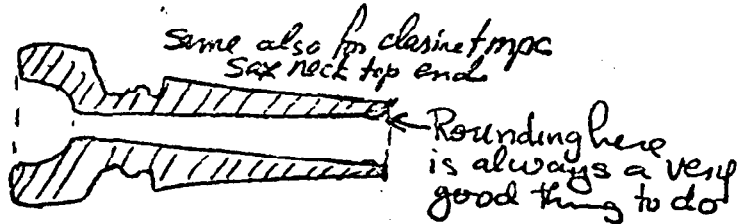 Same also for clarinet mpc
sax neck top end
Rounding here
is always a very
good thing to do